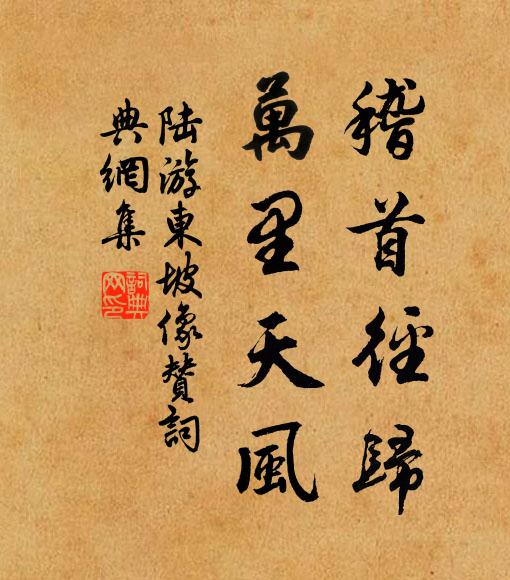 稽首徑歸
萬里天風
陸游東坡像贊詞
典網集
詞典
网印